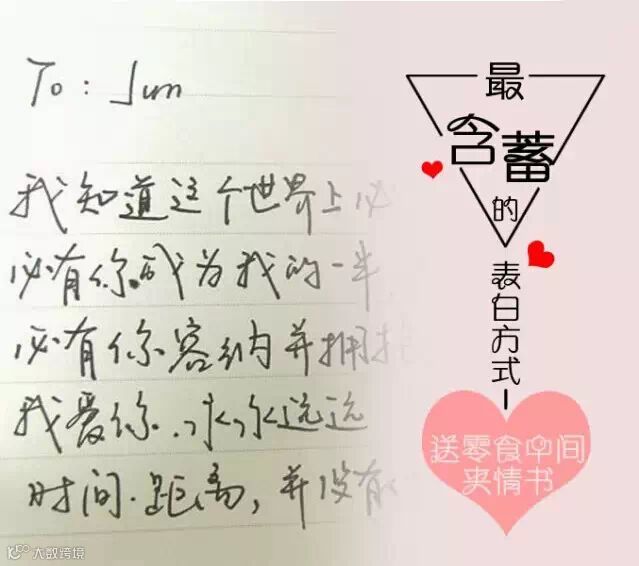 To: Jun
我知道这个世界上必
必有你.成为我的一半
必有你容纳并拥抱
我爱你.永永远远
时间.距离,并没有
最
含蓄
的
表白方式
送零食中间
夹情书
大数跨境